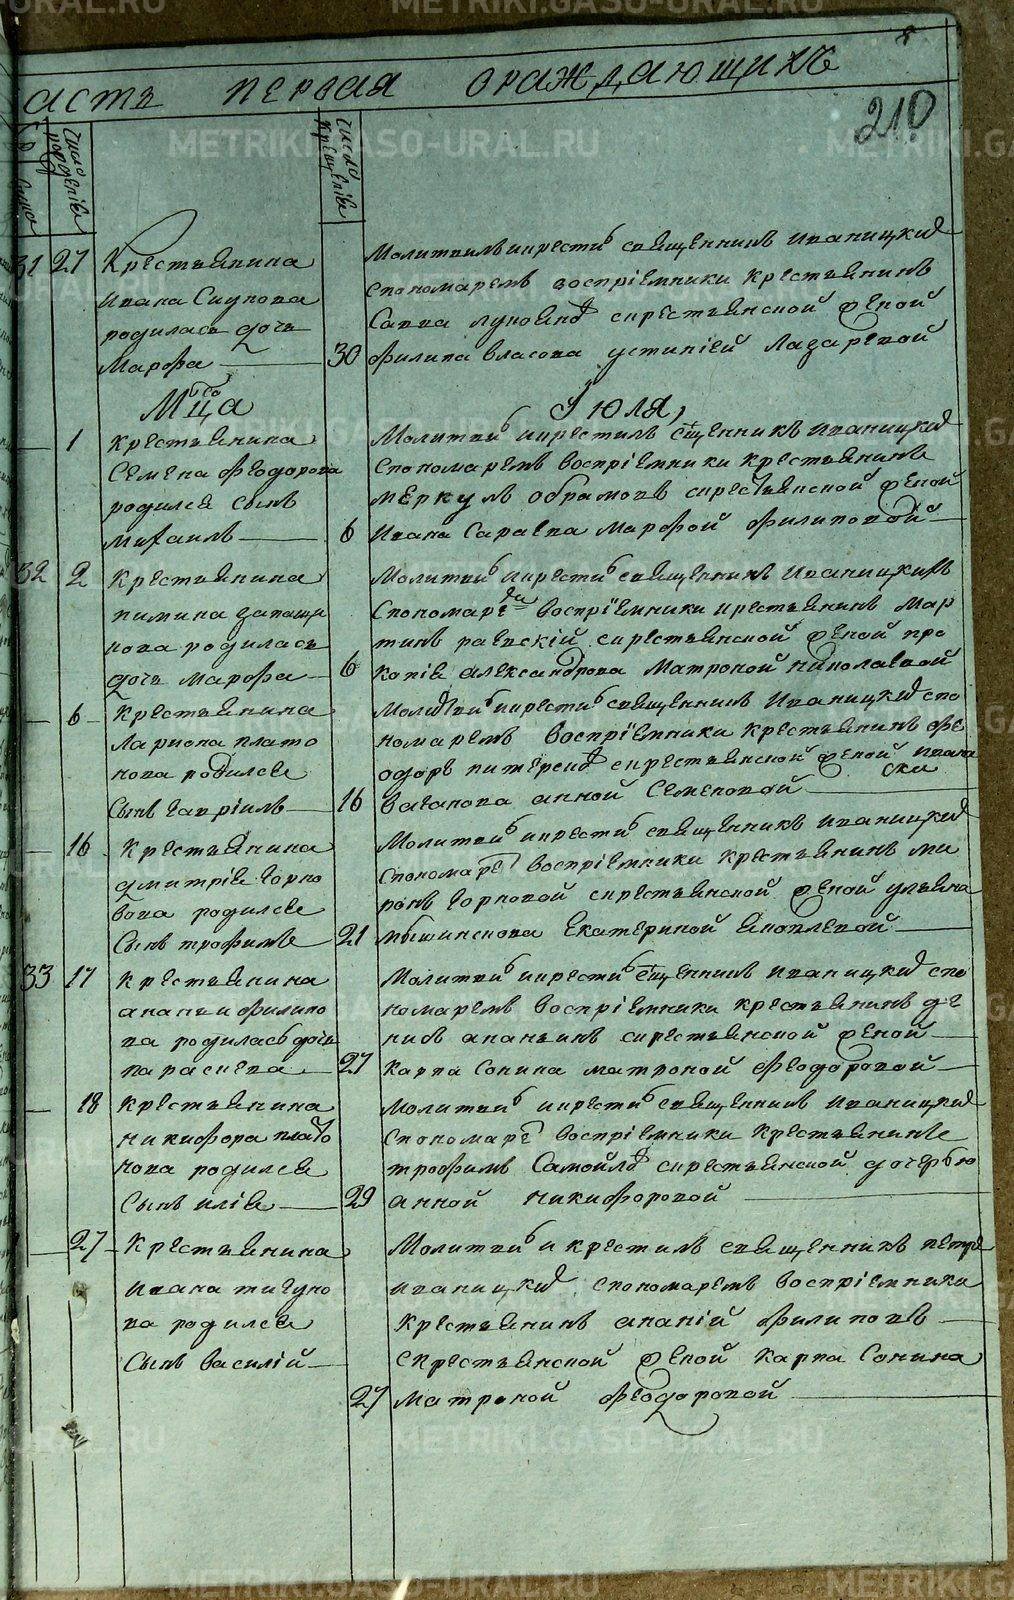 асть первая ораждающихъ
8
210
число рожденія
число крещенія
31 27 Крестьянина
Ивана
родилась дочь
Марфа
30
Молитвилъ и крестилъ священникъ Иваницкий
спономаремъ восприемники крестьянинъ
Савва скрестьянской женой
Филипа Власова устинией Лазаревой
Мца Июля,
1 крестьянина
Семена Феодорова
родился сынъ
Михаилъ
6
Молитви и крестилъ сщенникъ Иваницкий
спономаремъ восприемники крестьянинъ
меркулъ обрамовъ скрестьянской женой
Ивана Сараева Марфой Филиповой
32 2 Крестьянина
пимина
нова родилась
дочь Марфа
6
Молитви и крести священникъ Иваницкий
спономаремъ восприемники крестьянинъ мар
тинъ раевский скрестьянской женой про
копия александрова Матроной николаевой
6 Крестьянина
Лариона плато
нова родился
сынъ гавриилъ
16
Молитви и крести священникъ Иваницкий спо
номаремъ восприемники крестьянинъ фе
одоръ скрестьянской женой ивана
ваганова анной Семеновой
16 Крестьянина
дмитрия горно
вова родился
сынъ трофимъ
21
Молитви и крести священникъ Иваницкий
спономаре восприемники крестьянинъ ми
ронъ горновой скрестьянской женой ульяна
мышинскова Екатериной яковлевой
33 17 Крестьянина
ананьи филипо
ва родилась дочь
парасковa
27
Молитви и крести сщенникъ Иваницкий спо
номаремъ восприемники крестьянинъ де
нисъ ананьинъ скрестьянской женой
карпа Сонина матроной Феодоровой
18 Крестьянина
никифора плато
нова родился
сынъ илия
29
Молитви и крести священникъ Иваницкий
спономаре восприемники крестьянинъ
трофимъ Самойлов скрестьянской дочерью
анной никифоровой
27 Крестьянина
ивана тигуно
ва родился
сынъ василий
27
Молитви и крестилъ священникъ петръ
иваницкий спономаремъ восприемники
крестьянинъ ананий филиповъ
скрестьянской женой карпа Сонина
матроной феодоровой
METRIKI.GASO-URAL.RU